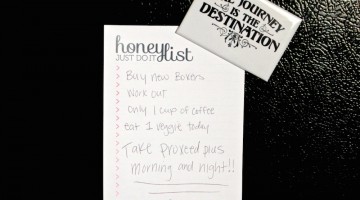 JOURNEY
IS THE
DESTINATION
honey list
JUST DO IT
Buy new Boxers
Work out
Only 1 cup of coffee
eat 1 veggie today
Take Proxeed plus
morning and night!!